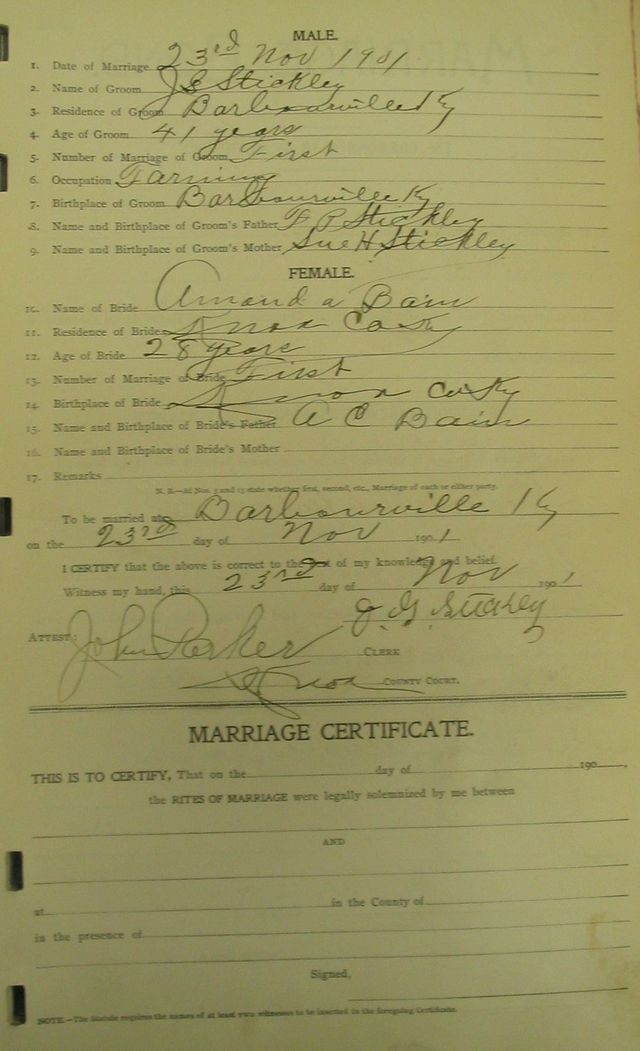 MALE.
1. Date of Marriage 23rd Nov 1901
2. Name of Groom J G Stickley
3. Residence of Groom Barbourville Ky
4. Age of Groom 41 years
5. Number of Marriage of Groom First
6. Occupation Farming
7. Birthplace of Groom Barbourville Ky
8. Name and Birthplace of Groom's Father F P Stickley
9. Name and Birthplace of Groom's Mother Sue H Stickley
FEMALE.
10. Name of Bride Amanda Bain
11. Residence of Bride Knox Co Ky
12. Age of Bride 28 years
13. Number of Marriage of Bride First
14. Birthplace of Bride Knox Co Ky
15. Name and Birthplace of Bride's Father A C Bain
16. Name and Birthplace of Bride's Mother
17. Remarks
N. B.—At Nos. 5 and 13 state whether first, second, etc., Marriage of each or either party.
To be married at Barbourville Ky
on the 23rd day of Nov 1901
I CERTIFY that the above is correct to the best of my knowledge and belief.
Witness my hand, this 23rd day of Nov 1901
J. G. Stickley
ATTEST: John Parker CLERK
Knox COUNTY COURT.
MARRIAGE CERTIFICATE.
THIS IS TO CERTIFY, That on the day of 190 ,
the RITES OF MARRIAGE were legally solemnized by me between
AND
at in the County of
in the presence of
Signed,
NOTE.—The Statute requires the names of at least two witnesses to be inserted in the foregoing Certificate.